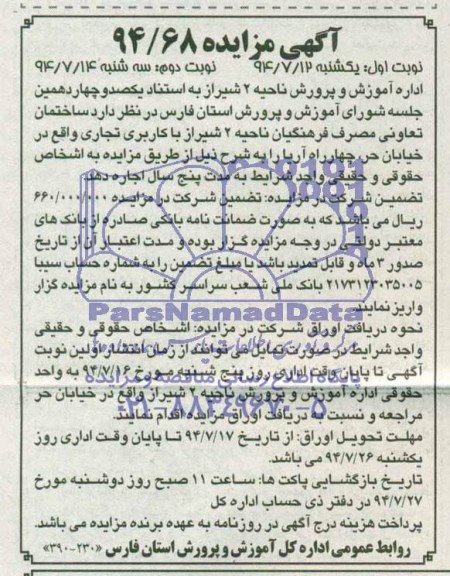 آگهی مزایده ۹۴/۶۸
نوبت اول: یکشنبه ۹۴/۷/۱۲ نوبت دوم: سه شنبه ۹۴/۷/۱۴
اداره آموزش و پرورش ناحیه ۲ شیراز به استناد یکصدوچهاردهمین
جلسه شورای آموزش و پرورش استان فارس در نظر دارد ساختمان
تعاونی مصرف فرهنگیان ناحیه ۲ شیراز با کاربری تجاری واقع در
خیابان حر، چهارراه آریا را به شرح ذیل از طریق مزایده به اشخاص
حقوقی و حقیقی واجد شرایط به مدت پنج سال اجاره دهد.
تضمین شرکت در مزایده: تضمین شرکت در مزایده ۶۶۰/۰۰۰/۰۰۰
ریال می باشد که به صورت ضمانت نامه بانکی صادره از بانک های
معتبر دولتی در وجه مزایده گزار بوده و مدت اعتبار آن از تاریخ
صدور ۳ ماه و قابل تمدید باشد یا مبلغ تضمین را به شماره حساب سیبا
۲۱۷۳۱۲۳۰۳۵۰۰۵ بانک ملی شعب سراسر کشور به نام مزایده گزار
واریز نمایند.
ParsNamadData
نحوه دریافت اوراق شرکت در مزایده: اشخاص حقوقی و حقیقی
واجد شرایط در صورت تمایل می توانند از زمان انتشار اولین نوبت
آگهی تا پایان وقت اداری روز پنج شنبه مورخ ۹۴/۷/۱۶ به واحد
پایگاه اطلاع رسانی مناقصه و مزایده
حقوقی اداره آموزش و پرورش ناحیه ۲ شیراز واقع در خیابان حر
مراجعه و نسبت به دریافت اوراق مزایده اقدام نمایند.
۰۲۱-۸۸۳۴۹۶۷۰-۵
مهلت تحویل اوراق: از تاریخ ۹۴/۷/۱۷ تا پایان وقت اداری روز
یکشنبه ۹۴/۷/۲۶ می باشد.
تاریخ بازگشایی پاکت ها: ساعت ۱۱ صبح روز دوشنبه مورخ
۹۴/۷/۲۷ در دفتر ذی حساب اداره کل
پرداخت هزینه درج آگهی در روزنامه به عهده برنده مزایده می باشد.
روابط عمومی اداره کل آموزش و پرورش استان فارس «۲۳۰-۳۹۰»